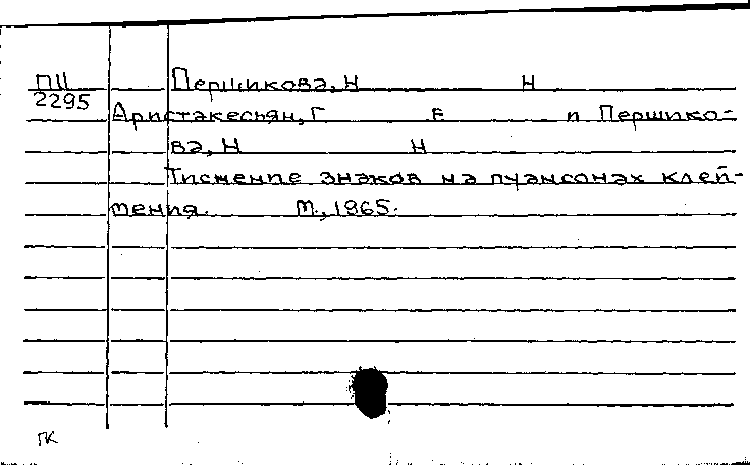 ПШ Першикова, Н Н
2295
Аристакесьян, Г. Е и Першико-
ва, Н Н
Тиснение знаков на пуансонах клей-
мения. М., 1965.
ПК